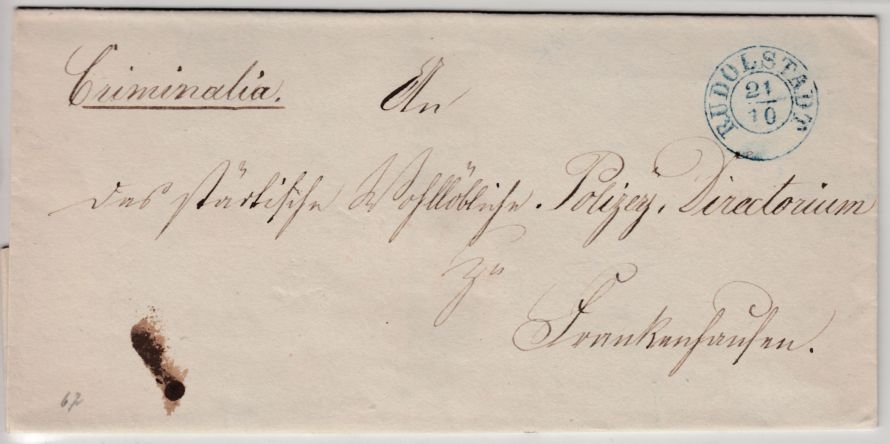 Criminalia. An
RUDOLSTADT
21
10
das städtische Wohllöbliche Polizey, Directorium
zu
Frankenhausen.
67